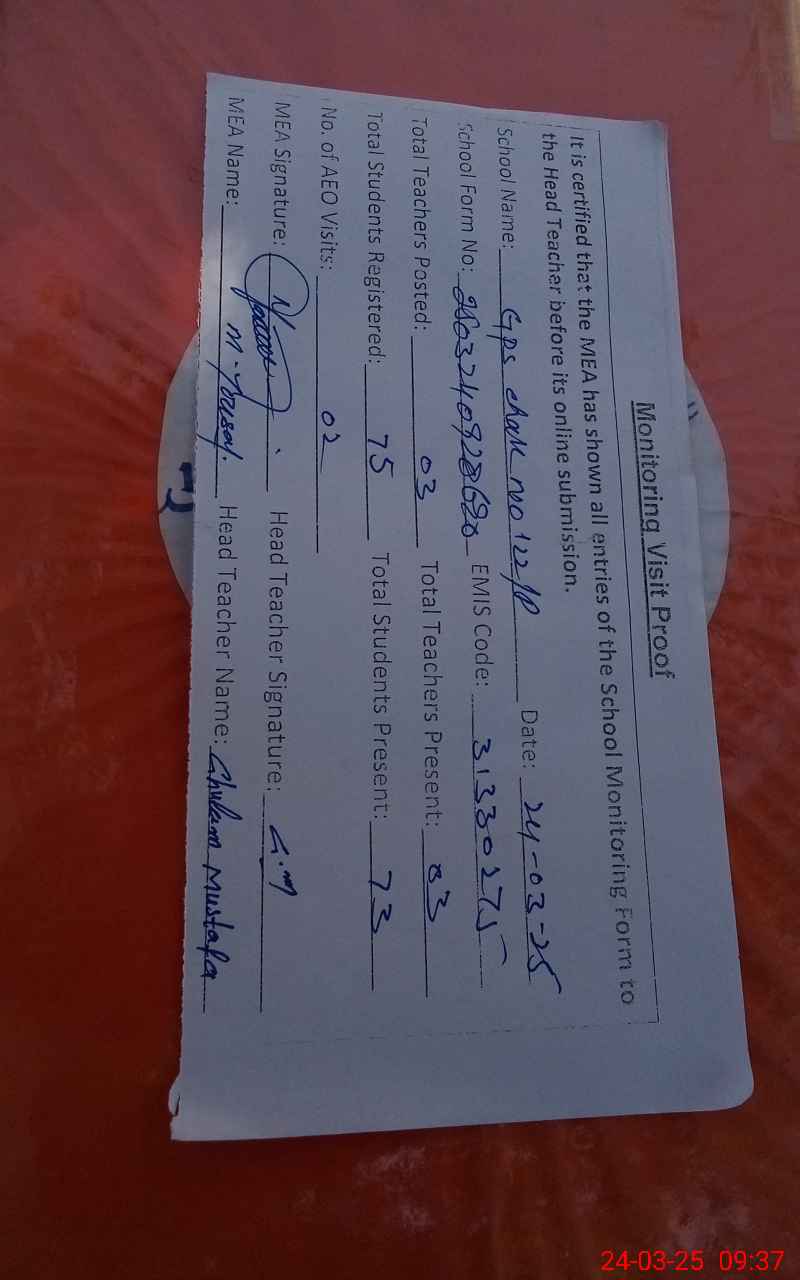 Monitoring Visit Proof
It is certified that the MEA has shown all entries of the School Monitoring Form to
the Head Teacher before its online submission.
School Name: GPS chak no 122/P Date: 24-03-25
School Form No: EMIS Code: 31330275
Total Teachers Posted: 03 Total Teachers Present: 03
Total Students Registered: 75 Total Students Present: 73
No. of AEO Visits: 02
MEA Signature: Head Teacher Signature: G.M
MEA Name: M. Yousaf. Head Teacher Name: Ghulam Mustafa
24-03-25 09:37